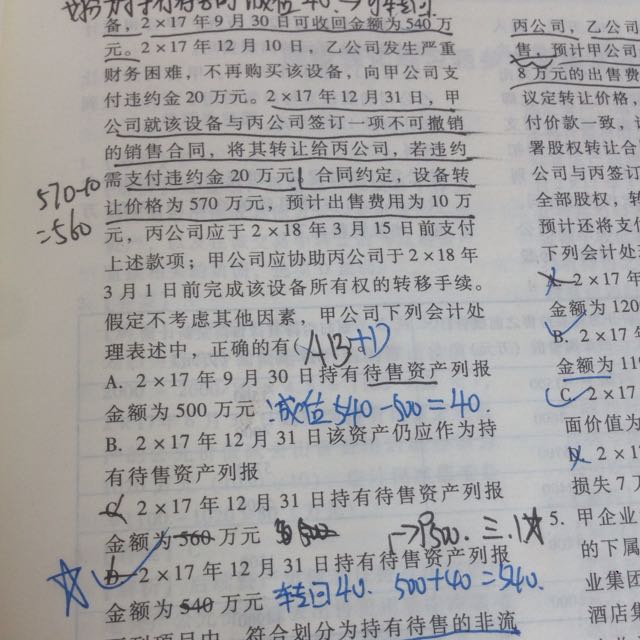 备，2×17年9月30日可收回金额为540万
元。2×17年12月10日，乙公司发生严重
财务困难，不再购买该设备，向甲公司支
付违约金20万元。2×17年12月31日，甲
公司就该设备与丙公司签订一项不可撤销
的销售合同，将其转让给丙公司，若违约
需支付违约金20万元。合同约定，设备转
让价格为570万元，预计出售费用为10万
元，丙公司应于2×18年3月15日前支付
上述款项；甲公司应协助丙公司于2×18年
3月1日前完成该设备所有权的转移手续。
假定不考虑其他因素，甲公司下列会计处
理表述中，正确的有( AB+D
570-10
=560
A. 2×17年9月30日持有待售资产列报
金额为500万元 :减值540-500=40.
B. 2×17年12月31日该资产仍应作为持
有待售资产列报
C. 2×17年12月31日持有待售资产列报
金额为560万元
→P500.三.1
D. 2×17年12月31日持有待售资产列报
金额为540万元 转回40. 500+40=540.
符合划分为持有待售的非流
丙公司，乙公司
售，预计甲公司
8万元的出售费
议定转让价格，
付价款一致，
署股权转让合
公司与丙签订
全部股权，转
预计还将支
下列会计处
A. 2×17年
金额为120
B. 2×17年
金额为11
C. 2×17
面价值为
D. 2×17
损失7万
5. 甲企业
的下属
业集团
酒店